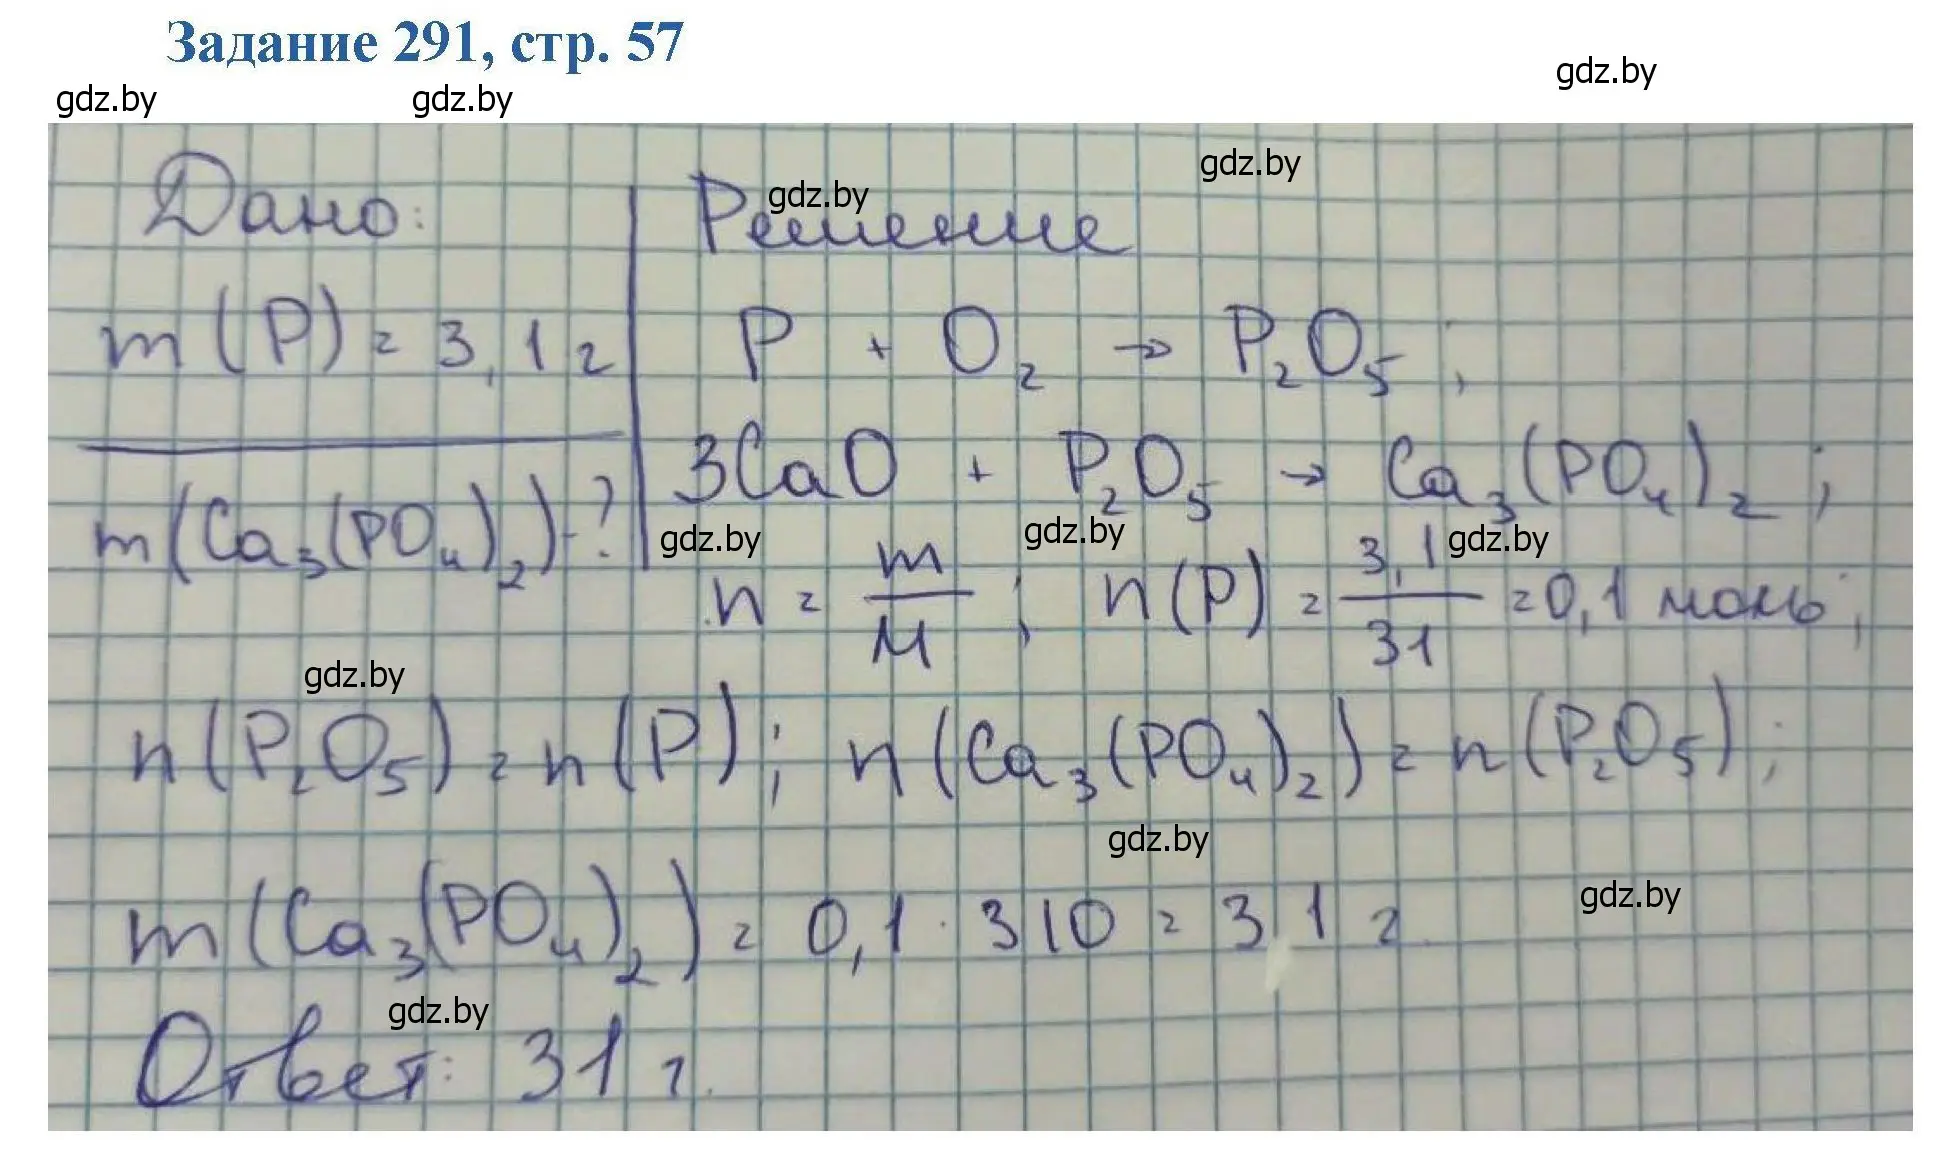 Задание 291, стр. 57
gdz.by
gdz.by gdz.by
gdz.by
gdz.by
Дано: Решение
m(P) = 3,1 г P + O₂ → P₂O₅;
m(Ca₃(PO₄)₂) - ? 3CaO + P₂O₅ → Ca₃(PO₄)₂;
gdz.by gdz.by gdz.by
n = m/M; n(P) = 3,1/31 = 0,1 моль;
gdz.by
n(P₂O₅) = n(P); n(Ca₃(PO₄)₂) = n(P₂O₅);
gdz.by
gdz.by
m(Ca₃(PO₄)₂) = 0,1 · 310 = 31 г.
gdz.by
Ответ: 31 г.